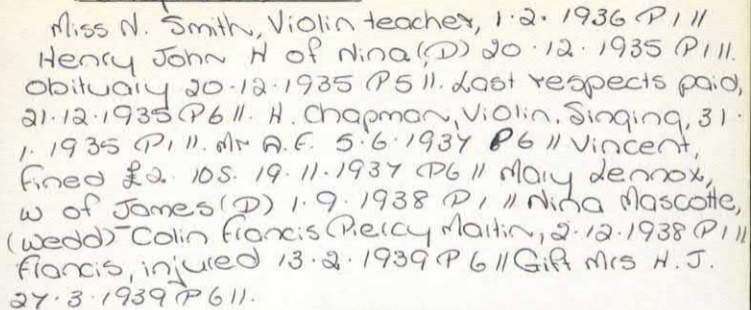 Miss N. Smith, Violin teacher, 1.2.1936 P1 //
Henry John H of Nina (D) 20.12.1935 P1 //.
Obituary 20.12.1935 P5 //. Last respects paid,
21.12.1935 P6 //. H. Chapman, Violin, Singing, 31.
1.1935 P1 //. Mr A.E. 5.6.1937 P6 // Vincent,
fined £2. 10s. 19.11.1937 P6 // Mary Lennox,
w of James (D) 1.9.1938 P1 // Nina Mascotte,
(wedd) - Colin Francis Piercy Martin, 2.12.1938 P1 //
Francis, injured 13.2.1939 P6 // Gift Mrs H.J.
27.3.1939 P6 //.